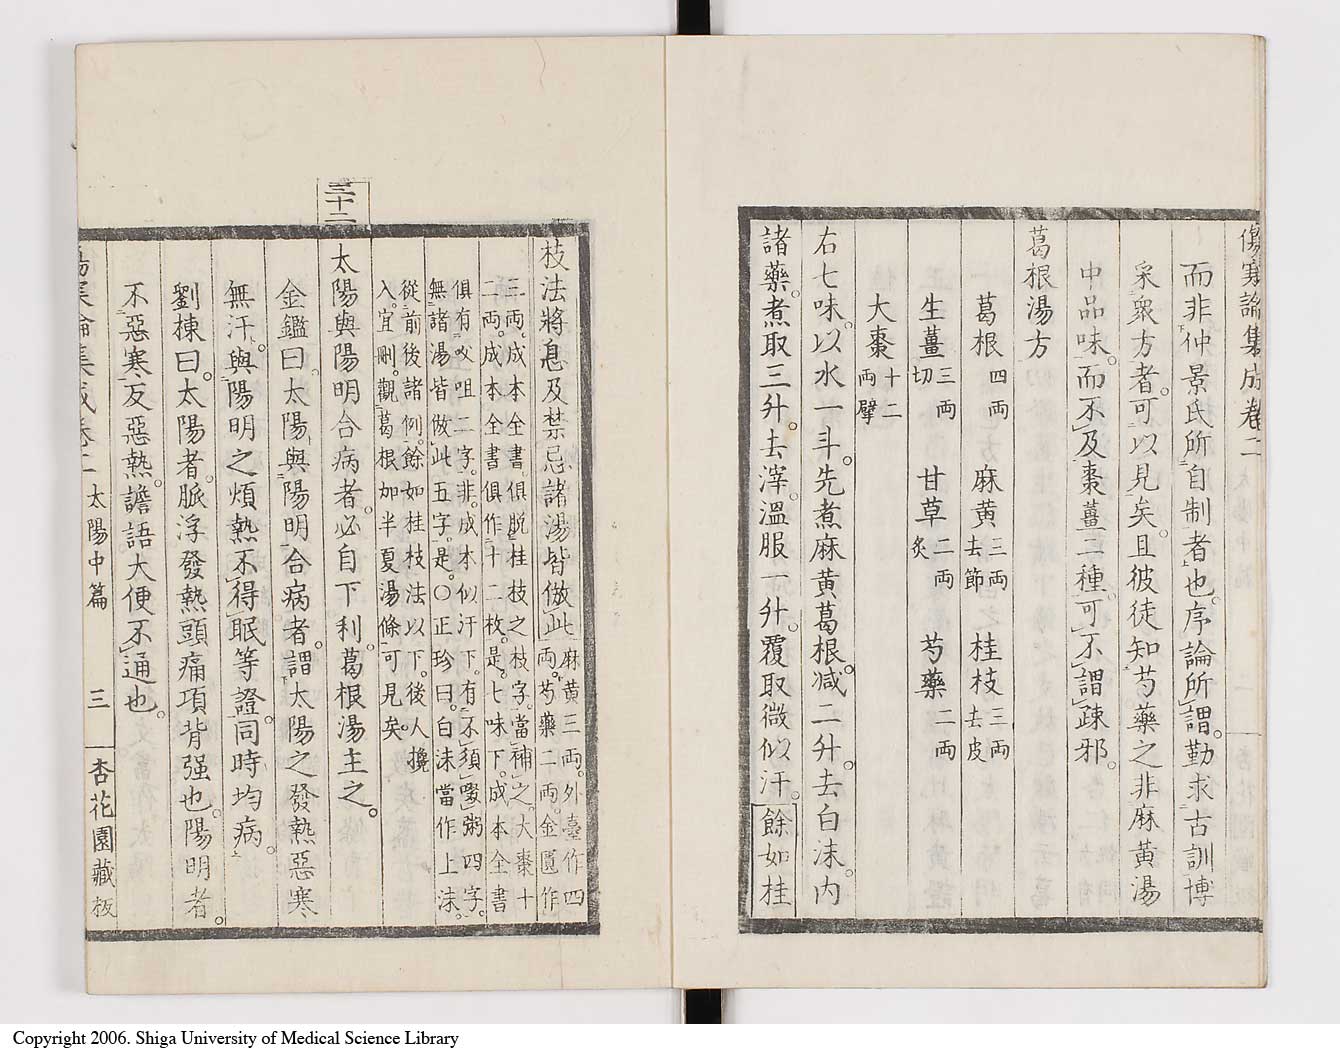 傷寒論集成卷二
而非仲景氏所自制者也。序論所謂。勤求古訓博
采衆方者。可以見矣。且彼徒知芍藥之非麻黃湯
中品味。而不及棗薑二種。可不謂疎邪。
葛根湯方
葛根四両 麻黄三両去節 桂枝三両去皮
生薑三両切 甘草二両炙 芍藥二両
大棗十二両擘
右七味。以水一斗。先煮麻黄葛根。減二升。去白沫。内
諸藥。煮取三升。去滓。溫服一升。覆取微似汗。餘如桂
枝法將息及禁忌諸湯皆倣此麻黄三両。外臺作四
両。芍藥二両。金匱作
三両。成本全書。俱脱桂枝之枝字。當補之。大棗十
二両。成本全書俱作十二枚。是。七味下。成本全書
俱有㕮咀二字。非。成本似汗下。有不須啜粥四字。
無諸湯皆倣此五字。是。〇正珍曰。白沫當作上沫。
從前後諸例。餘如桂枝法以下。後人攙
入。宜刪。觀葛根加半夏湯條可見矣。
三十二
太陽與陽明合病者。必自下利。葛根湯主之。
金鑑曰。太陽與陽明合病者。謂太陽之發熱惡寒
無汗。與陽明之煩熱不得眠等證。同時均病。
劉棟曰。太陽者。脈浮發熱頭痛項背强也。陽明者。
不惡寒。反惡熱。譫語大便不通也。
傷寒論集成卷二 太陽中篇 三 杏花園藏板
Copyright 2006. Shiga University of Medical Science Library